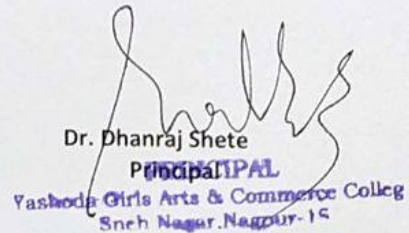 Dr. Dhanraj Shete
Principal
PRINCIPAL
Yashoda Girls Arts & Commerce Colleg
Sneh Nagar, Nagpur-15